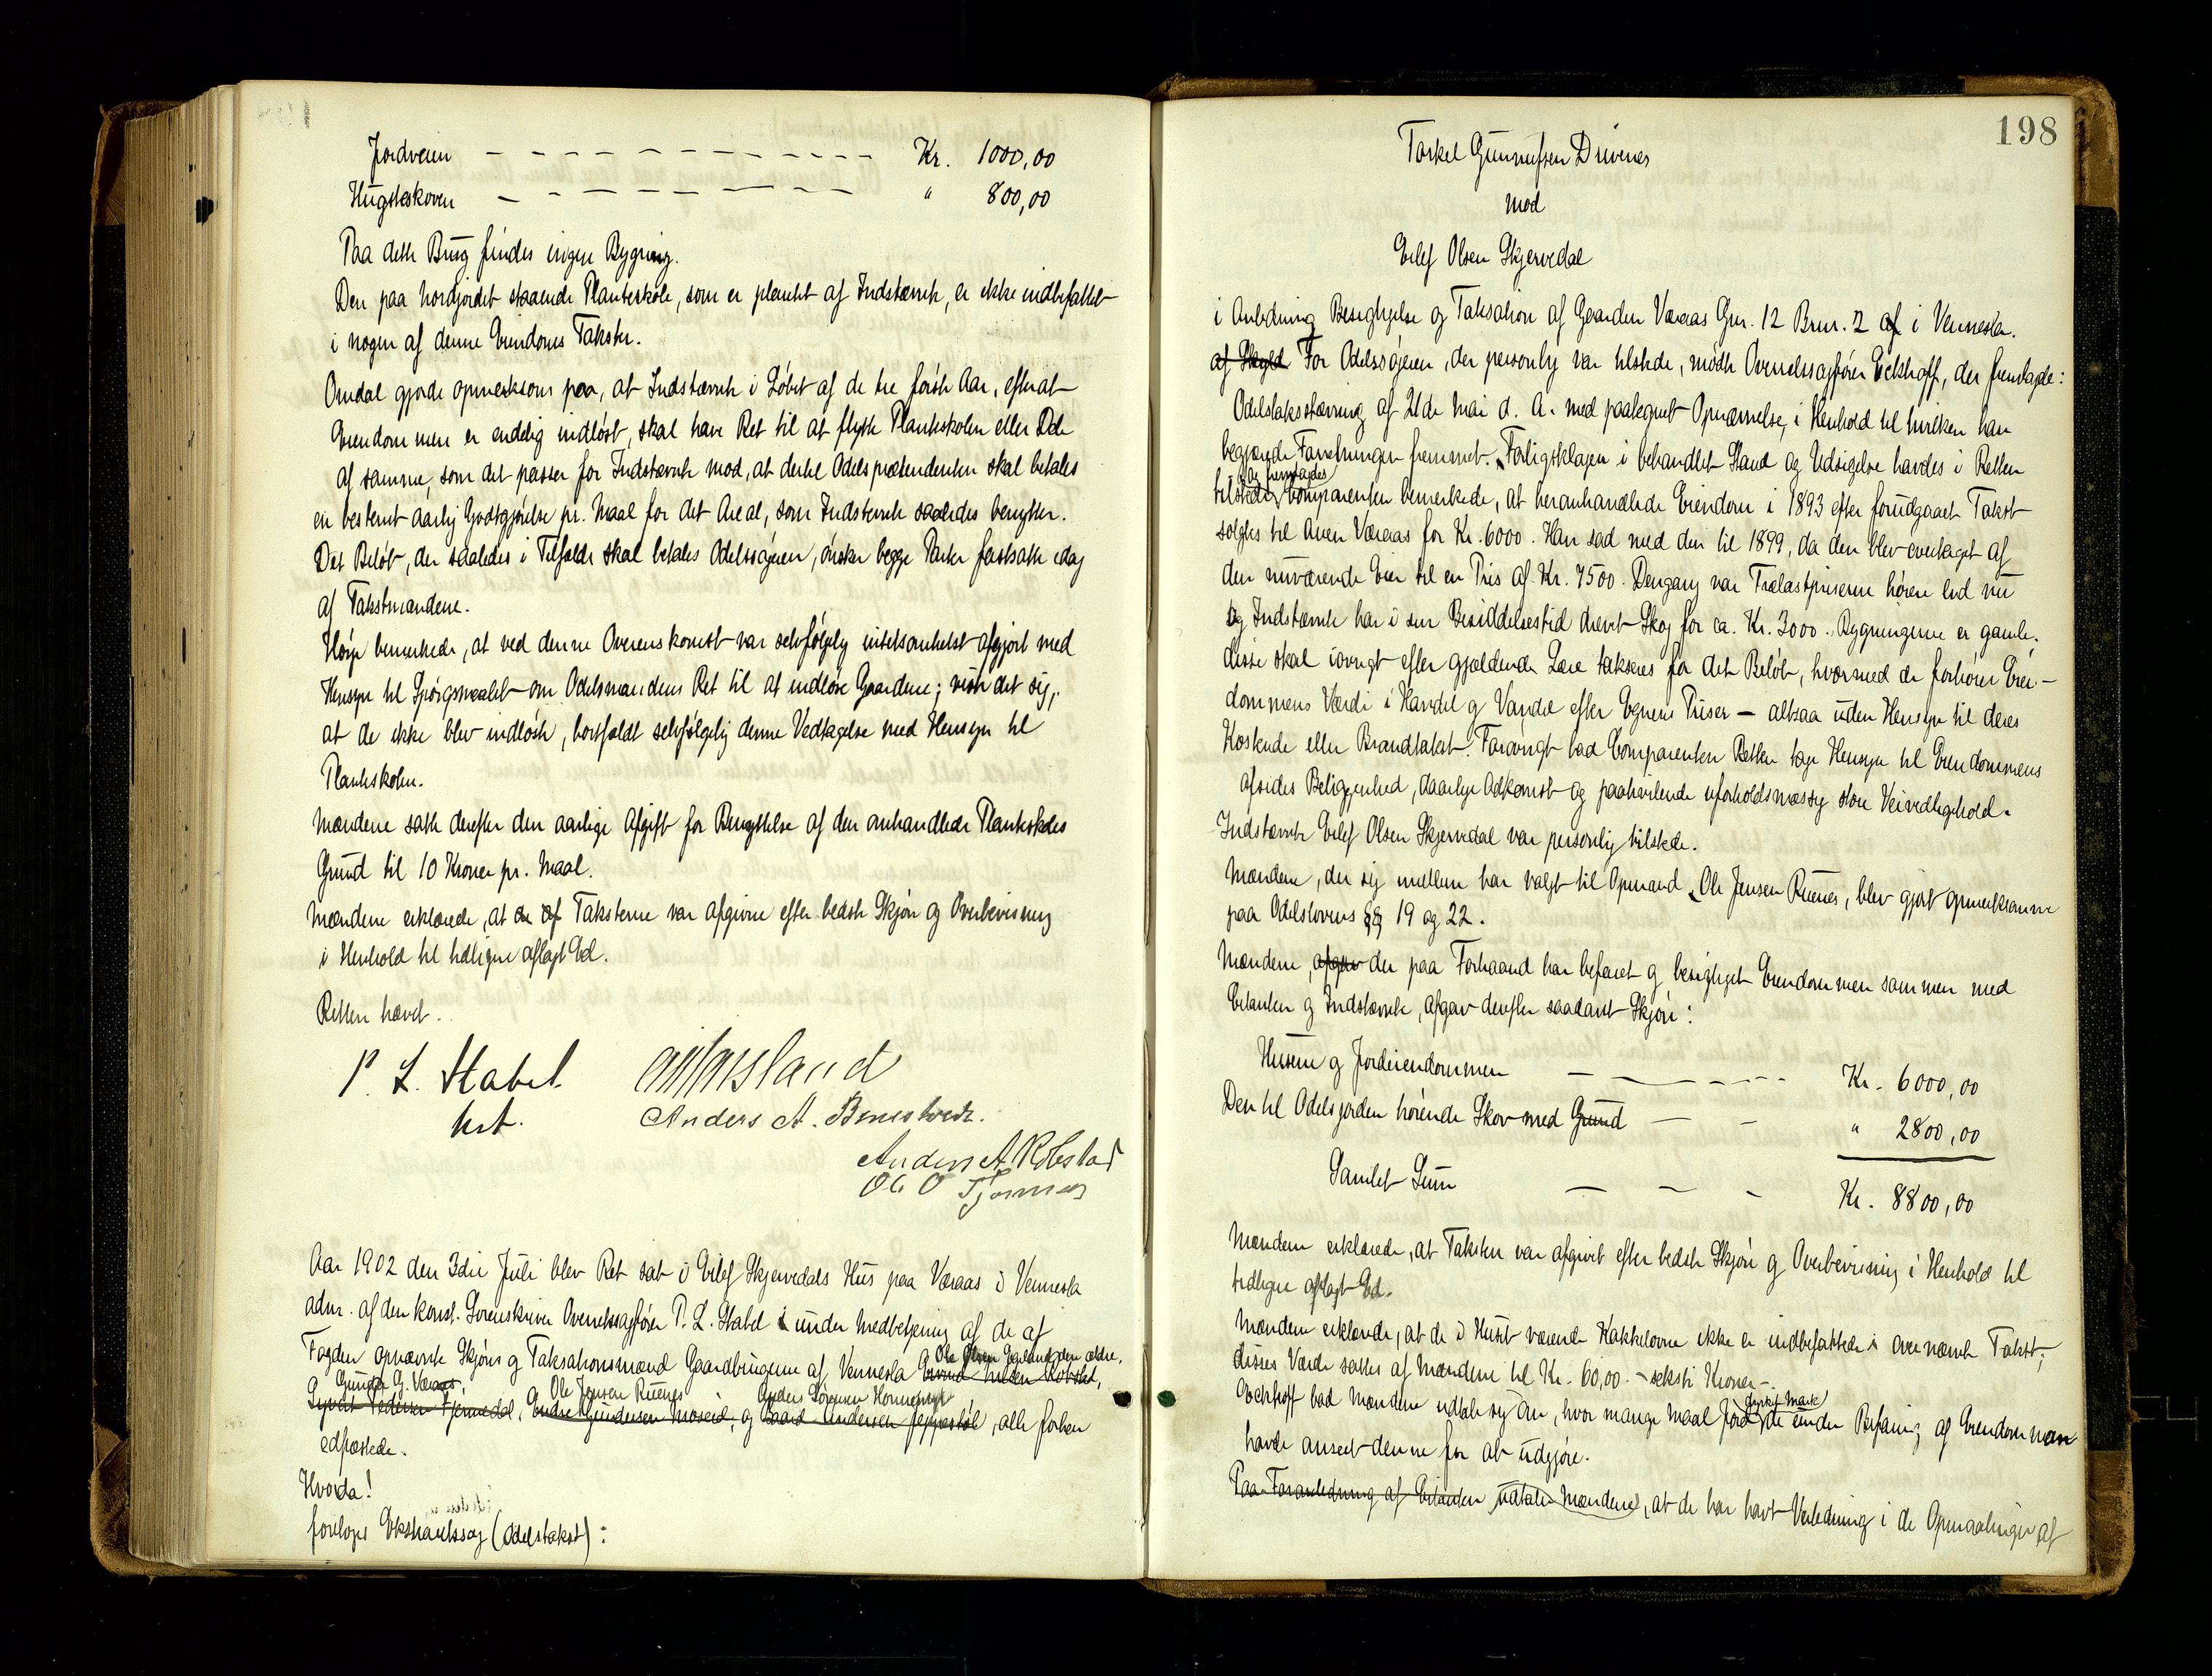 Jordveien — — — — — — — — Kr. 1000,00
Hugsteskoven — — — — — — — " 800,00
Paa dette Brug findes ingen Bygning.
Den paa Nordjordet staaende Planteskole, som er plantet af Indstævnte, er ikke indbefattet
i nogen af denne Eiendoms Takster.
Omdal gjorde opmerksom paa, at Indstævnte i Løbet af de tre første Aar, efterat
Eiendommen er endelig indløst, skal have Ret til at flytte Planteskolen eller Dele
af samme, som det passer for Indstævnte mod, at dertil Odelsprætendenten skal betales
en bestemt aarlig Godtgjørelse pr. Maal for det Areal, som Indstævnte saaledes benytter.
Det Beløb, der saaledes i Tilfælde skal betales Odelssøgeren, ønsker begge Parter fastsatte idag
af Takstmændene.
Høyer bemerkede, at ved denne Overenskomst var selvfølgelig intetsomhelst afgjort med
Hensyn til Spørgsmaalet om Odelsmandens Ret til at indløse Gaardene; viste det sig,
at de ikke blev indløste, bortfaldt selvfølgelig denne Vedtagelse med Hensyn til
Planteskolen.
Mændene satte derefter den aarlige Afgift for Benyttelse af den omhandlede Planteskoles
Grund til 10 Kroner pr. Maal.
Mændene erklærede, at Taksterne var afgivne efter bedste Skjøn og Overbevisning
i Henhold til tidligere aflagt Ed.
Retten hævet.
P. L. Stabel
kst.
Anders A.
Anders A Robstad
Ole O
Aar 1902 den 3die Juli blev Ret sat i Eilef Skjervedals Hus paa Væraas i Vennesla
adm. af den konst. Sorenskriver Overretssagfører P. L. Stabel under Medbetjening af de af
Ole Olsen Egeland den ældre,
Fogden opnævnte Skjøns og Taksationsmænd Gaardbrugerne af Vennesla Eivind Nilsen Robstad,
Gunder G. Væraas, Ole Jensen Ruenes Anders Sørensen Honnemyr
Syvert Pedersen Fjermedal, Endre Gundersen Moseid, og Baard Andersen Jeppestøl, alle forhen
edfæstede.
Hvorda!
foretoges Ekstraretssag (Odelstakst):
198
Torkel Gunnufsen Drivenes
mod
Eilef Olsen Skjervedal
i Anledning Besigtigelse og Taksation af Gaarden Væraas Gnr. 12 Brnr. 2 af i Vennesla.
af Skyld For Odelssøgeren, der personlig var tilstede, mødte Overretssagfører Eckhoff, der fremlagde:
Odelstakststævning af 21de Mai d. A. med paategnet Opnævnelse, i Henhold til hvilken han
begjærede Forretningen fremmet. Forligsklagen i behandlet Stand og Udsigelse havdes i Retten
og fremlagdes
tilstede. Comparenten bemerkede, at heromhandlede Eiendom i 1893 efter forudgaaet Takst
solgtes til Aven Væraas for Kr. 6000. Han sad med den til 1899, da den blev overtaget af
den nuværende Eier til en Pris af Kr. 7500. Dengang var Trælastpriserne høiere end nu
og Indstævnte har i sin Besiddelsestid drevet Skog for ca. Kr. 3000. Bygningerne er gamle.
disse skal iøvrigt efter gjældende Lære takseres for det Beløb, hvormed de forhøier Eien-
dommens Værdi i Handel og Vandel efter Egnens Priser – altsaa uden Hensyn til deres
Kostende eller Brandtakst. Forøvrigt bad Comparenten Retten tage Hensyn til Eiendommens
afsides Beliggenhed, daarlige Adkomst og paahvilende uforholdsmæssig store Veivedligehold.
Indstævnte Eilef Olsen Skjervedal var personlig tilstede.
Mændene, der sig imellem har valgt til Opmand Ole Jensen Ruenes, blev gjort opmerksomme
paa Odelslovens §§ 19 og 22.
Mændene, afgav der paa Forhaand har befaret og besigtiget Eiendommen sammen med
Citanten og Indstævnte, afgav derefter saadant Skjøn:
Husene og Jordeiendommen — — — — Kr. 6000,00
Den til Odelsjorden hørende Skov med Grund — — " 2800,00
Samlet Sum — — — Kr. 8800,00
Mændene erklærede, at Taksten var afgivet efter bedste Skjøn og Overbevisning i Henhold til
tidligere aflagt Ed.
Mændene erklærede, at de i Huset værende Kakkelovne ikke er indbefattede i overnævnte Takst;
disses Værdi sattes af Mændene til Kr. 60,00 – seksti Kroner –.
dyrket Mark
Eckhoff bad Mændene udtale sig om, hvor mange Maal Jord de under Befaring af Eiendommen
havde anseet denne for at udgjøre.
Paa Foranledning af Citanten udtaler Mændene, at de har havt Veiledning i de Opmaalinger af